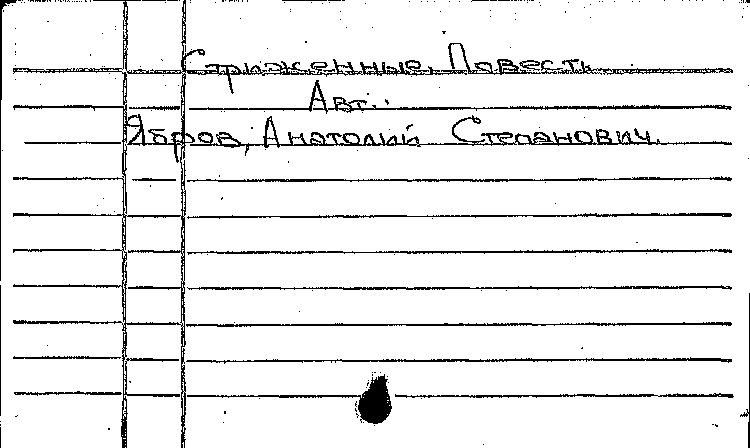 Стриженные. Повесть.
Авт.:
Ябров, Анатолий Степанович.